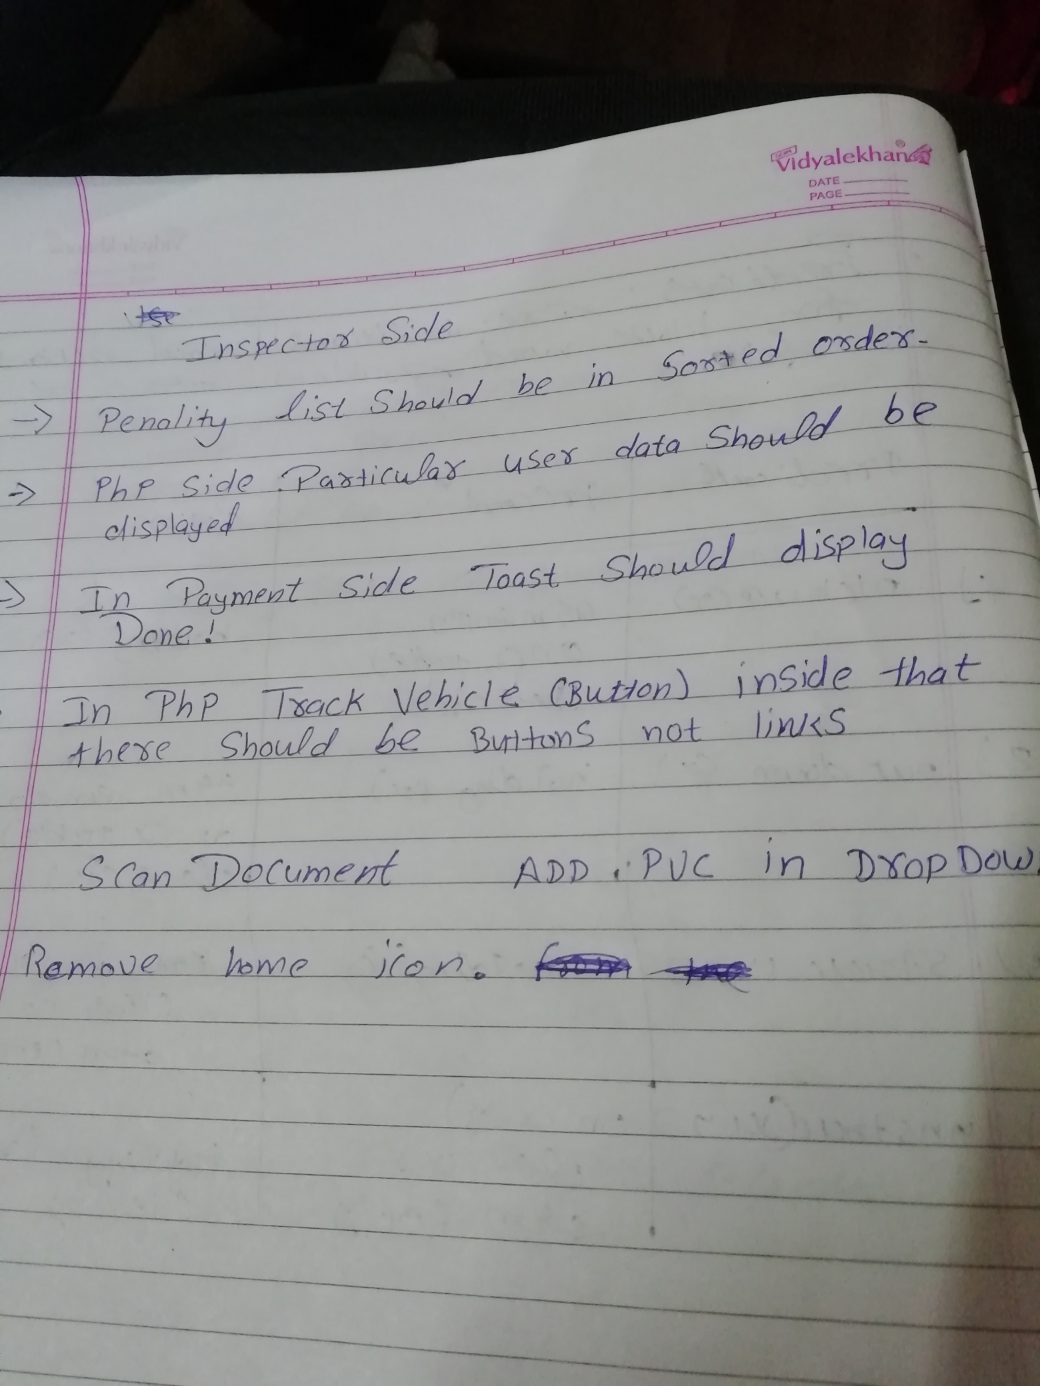 Vidyalekhan
DATE
PAGE
Inspector Side
-> Penality list Should be in Sorted order.
-> PhP Side Particular user data Should be
displayed
-> In Payment Side Toast Should display
Done!
In PhP Track Vehicle (Button) inside that
there Should be Buttons not links
Scan Document ADD : PVC in DropDow
Remove home icon.